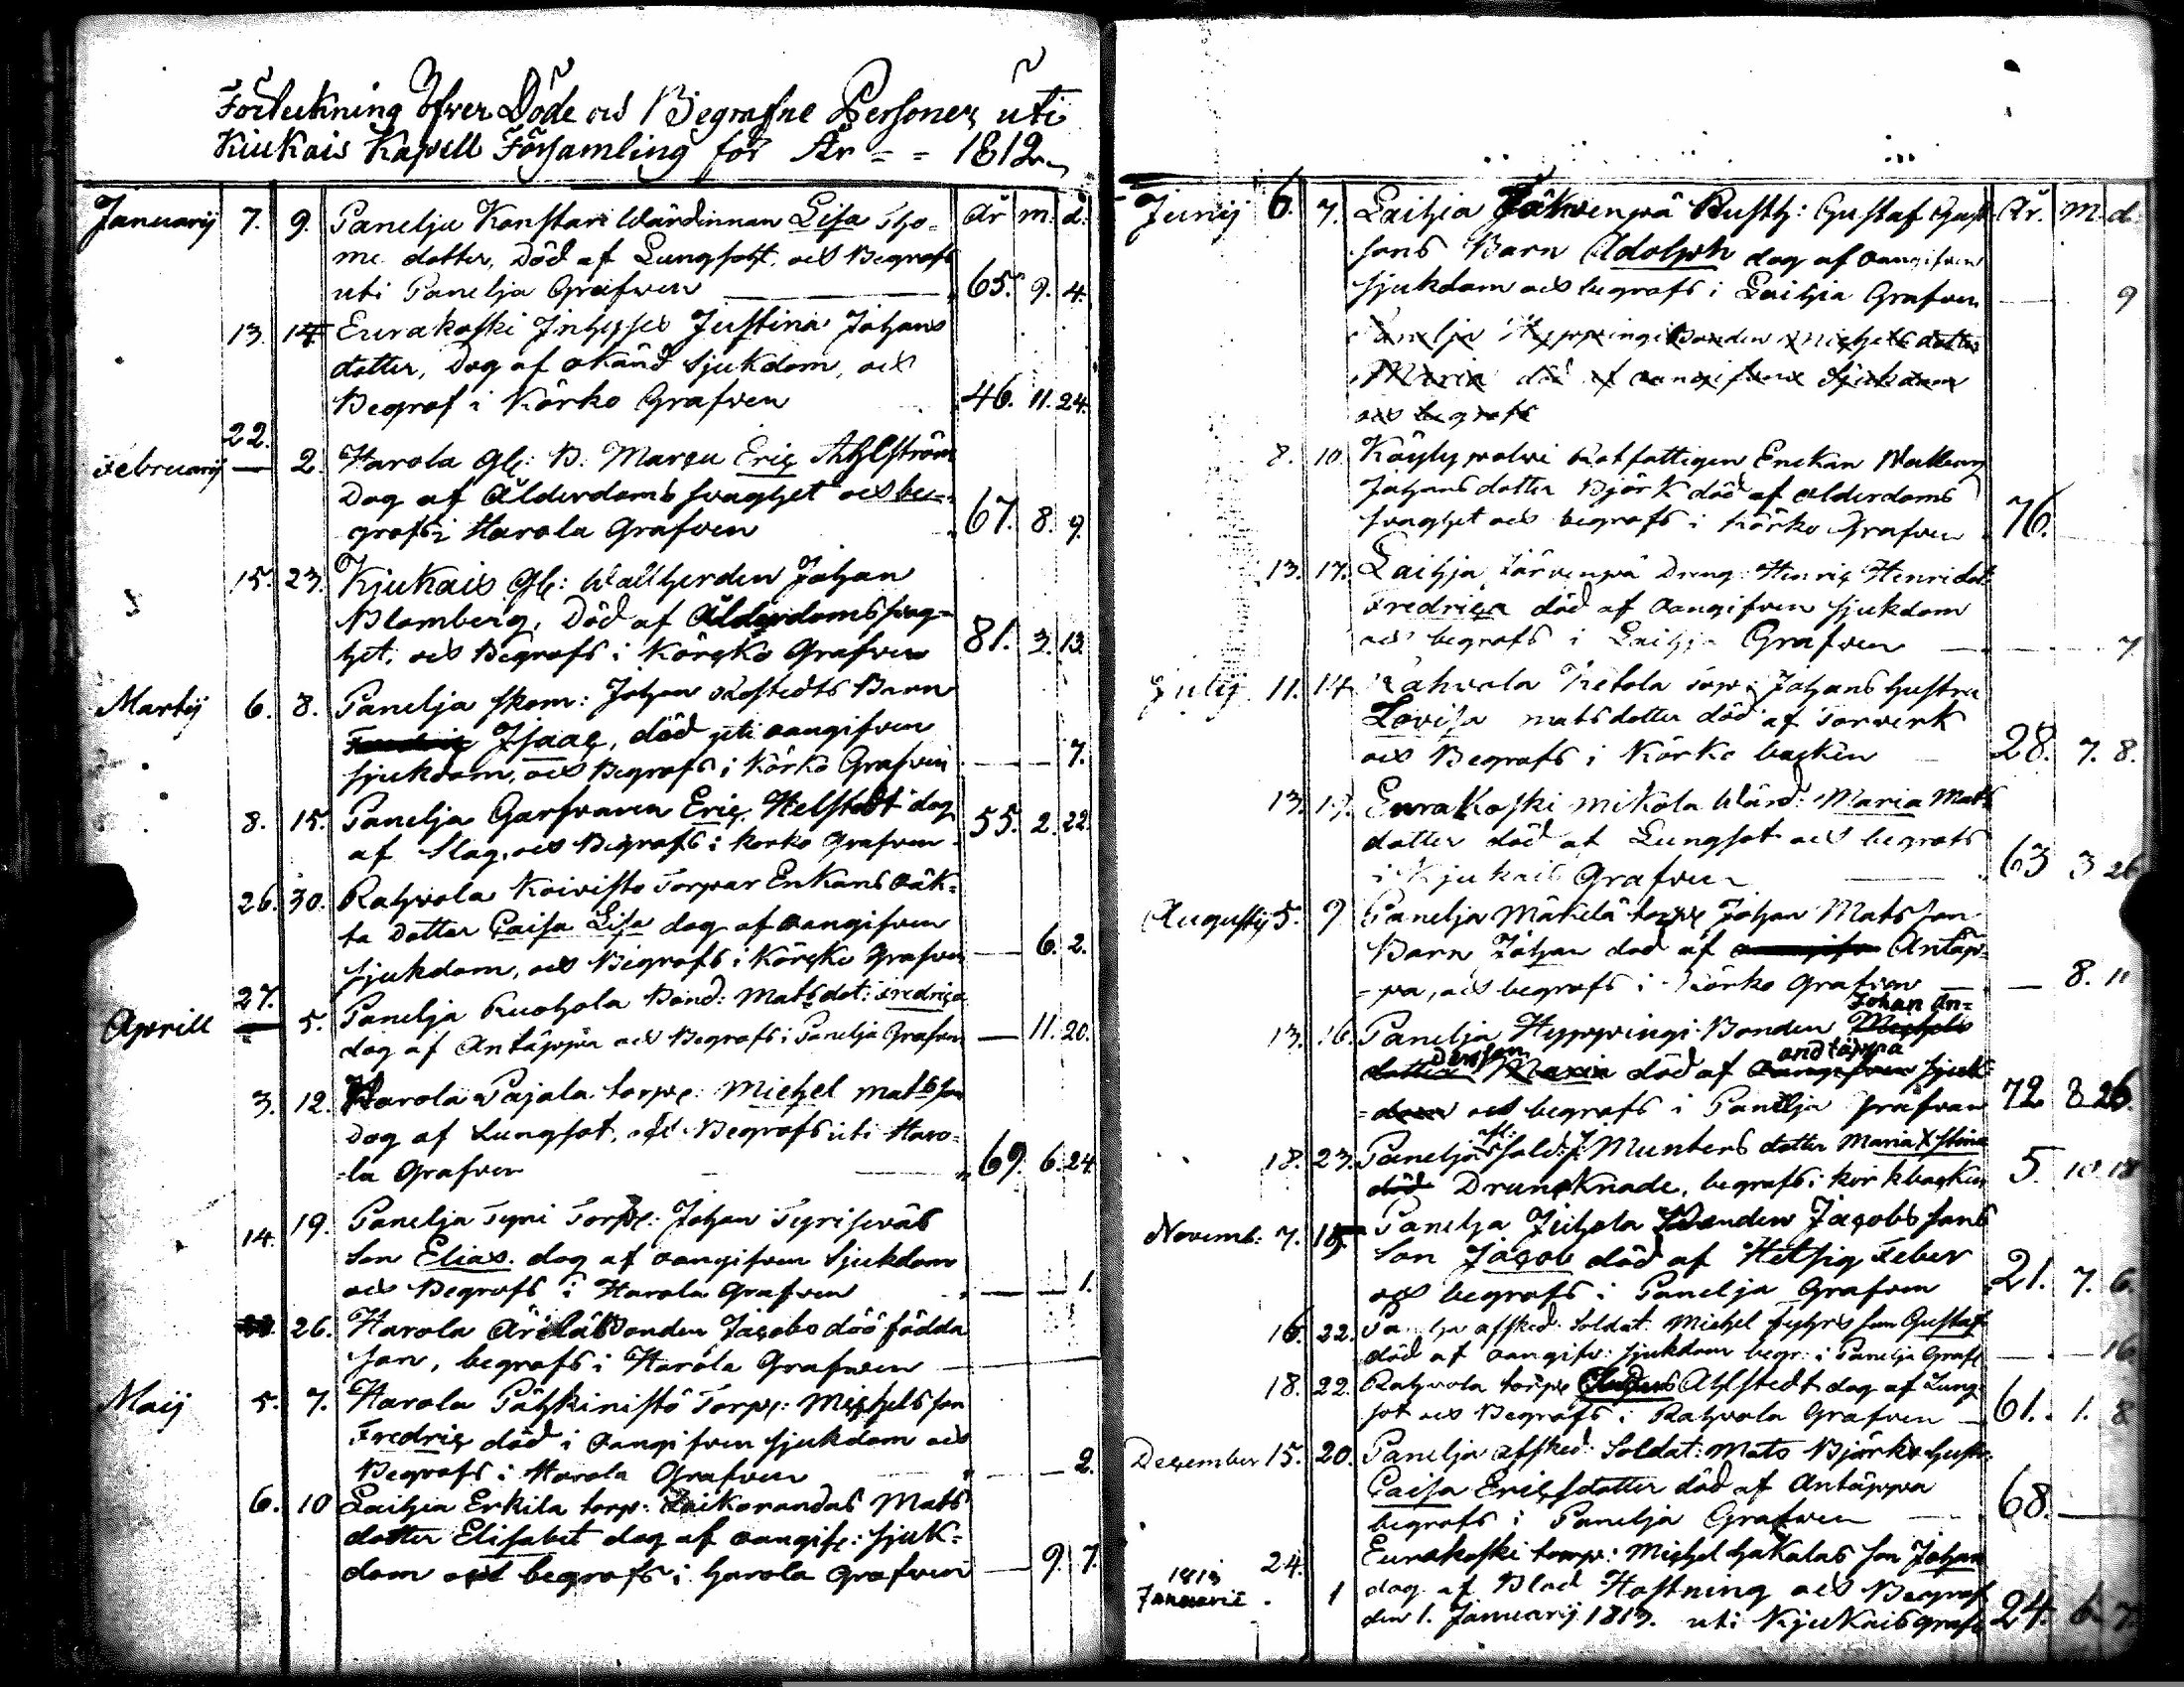 Förteckning Öfver Döde och Begrafne Personer, uti
Kiukais Kapell Församling för År = = 1812.
Januarij 7. 9. Panelja Konstari Wärdinnan Lisa Tho= År m. d.
me dotter, Död af Lungsott, och Begrofs
uti Panelja Grafven 65. 9. 4.
13. 14 Eurakoski Inhyses Justina Johans
dotter, Dog af okänd sjukdom, och
Begrof i Körko Grafven 46. 11. 24.
22.
Februarij — 2. Harola Gl: B: Marcu Eric Ahlström
Dog af Ålderdoms svaghet och be=
grofs i Harola Grafven 67. 8. 9.
15. 23. Kjukais Gl: Wallherden Johan
Blomberg, Död af Ålderdoms svag=
het, och Begrofs i Körcko Grafven 81. 3. 13.
Martij 6. 8. Panelja skom: Johan Barn
Isaac, död uti oangifven
sjukdom, och Begrofs i Körko Grafven — — 7.
8. 15. Panelja Garfvaren Eric Helstedt dog
af Slag, och Begrofs i korko Grafven 55. 2. 22.
26. 30. Rahvola Koivisto Torpar Enkans oäk=
ta Dotter Caisa Lisa dog af oangifven
sjukdom, och Begrofs i Körcko Grafven — 6. 2.
27.
Aprill — 5. Panelja Ruohola Bond: Mats dot: Fredrica
dog af Antäppa och Begrofs i Panelja Grafven — 11. 20.
3. 12. Harola Pajala torp: Michel mats son
Dog af Lungsot, och Begrofs uti Haro=
=la Grafven 69. 6. 24.
14. 19. Panelja Tyni Torp: Johan
Son Elias. dog af oangifven sjukdom
och Begrofs i Harola Grafven — — 1.
26. Harola Ärilä Bonden Jacobs död födda
son, begrofs i Harola Grafven
Maij 5. 7. Harola Pätkinistö Torp: Michels son
Fredric död i oangifven sjukdom och
Begrofs i Harola Grafven — 2.
6. 10 Laihia Erkila torp: Mats
dotter Elisabet dog af oangif: sjuk=
dom och begrofs i Harola Grafven — 9. 7.
Junij 6. 7. Laihia Järvenpä Rusth: Gustaf Gust År. M. d.
sons Barn Adolph dog af oangifven
sjukdom och begrofs i Laihia Grafven — 9
Panelja Hyppingi Bonden Michels dotter
Maria död af oangifven sjukdom
och begrofs
8. 10. Köylypolvi Rotfattigen Enckan Walborg
Johansdotter Björk död af alderdoms
svaghet och begrofs i Körko Grafven 76.
13. 17. Laihja Järvenpä Dreng: Henric Henri dot
Fredrica död af oangifven sjukdom
och begrofs i Laihja Grafven — 7
Julij 11. 14 Rahvola Ketola torp: Johans hustru
Lovisa matsdotter död af Torverk
och Begrofs i Körko backen 28. 7. 8.
13. 19. Eurakoski Mikola Wärd: Maria Mats
dotter död af Lungsot och begrofs
i Kjukais Grafven 63 3 26
Augustij 5. 9 Panelja Mäkelä torp: Johan Mats son
Barn Johan dod af Antäp=
=pa, och begrofs i Körko Grafven — 8. 11
Johan An=
13. 16. Panelja Hyppingi Bonden Michels
dersson andtäppa
dotter Maria död af oangifven sjuk=
=dom och begrofs i Panelja Grafven 72 8 26.
afs:
18. 23. Panelja Sold: J: Munters dotter Maria Xstina
död Drunknade, begrofs i körkbacken 5. 10 18
Novemb: 7. 15. Panelja Juhola Bonden Jacobs sons
Son Jacob död af Hetsig Feber
och begrofs i Panelja Grafven 21. 7. 6.
16. 22. Panelja afsked: Soldat: Michel son Gustaf
död af oangifv: sjukdom begr: i Panelja Graf — — 16
18. 22. Rahvola torp: Ahlstedt dog af Lung
sot och Begrofs i Rahvola Grafven 61. 1. 8
December 15. 20. Panelja afsked: Soldat: Mats Björks hust:
Caisa Ericsdotter död af Antäppa
begrofs i Panelja Grafven 68.
24. Eurakoski torp: Michel Hakalas son Johan
1813
Januarii 1 dog af Blod Hostning och Begrof
den 1. Januarij 1813. uti Kjukais Graf 24. 6. 7.